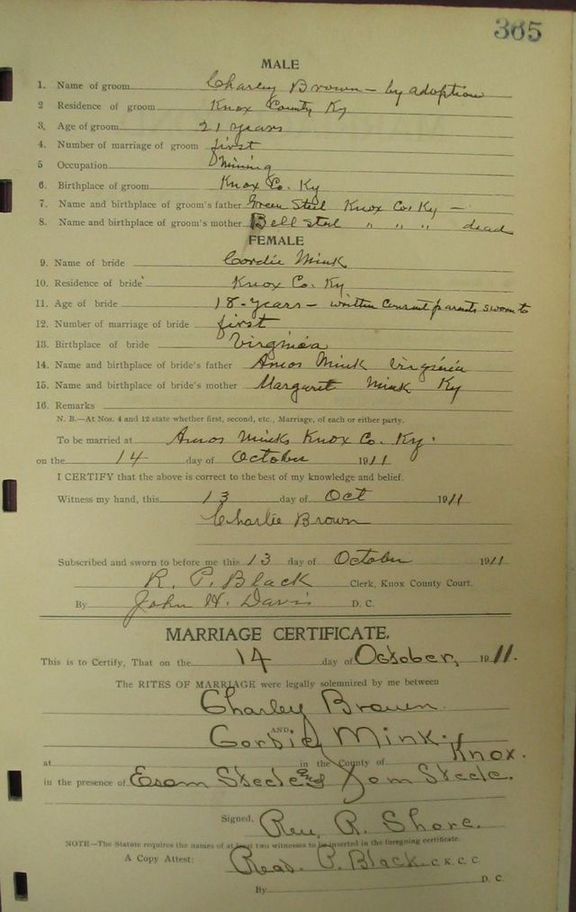 365
MALE
1. Name of groom Charley Brown - by adoption
2 Residence of groom Knox County Ky
3. Age of groom 21 years
4. Number of marriage of groom first
5 Occupation Mining
6. Birthplace of groom Knox Co. Ky
7. Name and birthplace of groom's father Green Steel Knox Co. Ky -
8. Name and birthplace of groom's mother Bell Steel " " " dead
FEMALE
9. Name of bride Cordie Mink
10. Residence of bride Knox Co. Ky
11. Age of bride 18-years - written consent parents sworn to
12. Number of marriage of bride first
13. Birthplace of bride Virginia
14. Name and birthplace of bride's father Amos Mink Virginia
15. Name and birthplace of bride's mother Margaret Mink Ky
16. Remarks
N. B.—At Nos. 4 and 12 state whether first, second, etc., Marriage, of each or either party.
To be married at Amos Minks Knox Co. Ky.
on the 14 day of October 1911
I CERTIFY that the above is correct to the best of my knowledge and belief.
Witness my hand, this 13 day of Oct 1911
Charlie Brown
Subscribed and sworn to before me this 13 day of October 1911
R. P. Black Clerk, Knox County Court.
By John H. Davis D. C.
MARRIAGE CERTIFICATE.
This is to Certify, That on the 14 day of October, 1911.
The RITES OF MARRIAGE were legally solemnized by me between
Charley Brown
AND
Cordie Mink.
at in the County of Knox.
in the presence of Esom Steele and Tom Steele.
Signed, Rev. R. Shore.
NOTE—The Statute requires the names of at least two witnesses to be inserted in the foregoing certificate.
A Copy Attest: Read. P. Black C. K. C. C.
By D. C.